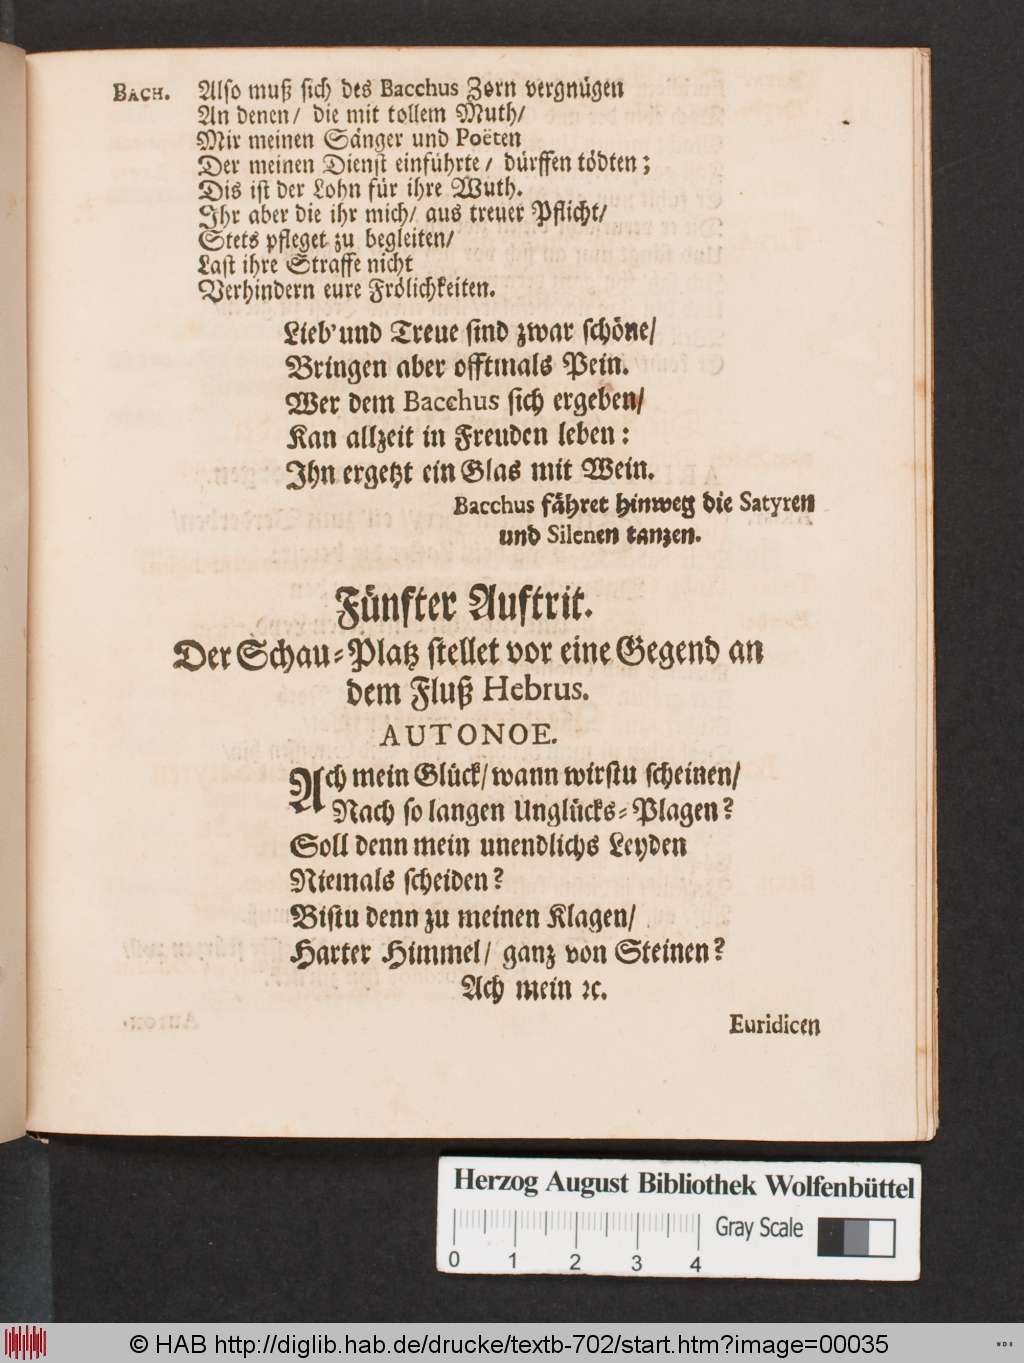 BACH. Also muß sich des Bacchus Zorn vergnügen
An denen/ die mit tollem Muth/
Mir meinen Sänger und Poëten
Der meinen Dienst einführte/ dürffen tödten;
Dis ist der Lohn für ihre Wuth.
Ihr aber die ihr mich/ aus treuer Pflicht/
Stets pfleget zu begleiten/
Last ihre Straffe nicht
Verhindern eure Frölichkeiten.
Lieb' und Treue sind zwar schöne/
Bringen aber offtmals Pein.
Wer dem Bacchus sich ergeben/
Kan allzeit in Freuden leben:
Ihn ergetzt ein Glas mit Wein.
Bacchus fähret hinweg die Satyren
und Silenen tanzen.
Fünfter Auftrit.
Der Schau-Platz stellet vor eine Gegend an
dem Fluß Hebrus.
AUTONOE.
Ach mein Glück/ wann wirstu scheinen/
Nach so langen Unglücks-Plagen?
Soll denn mein unendlichs Leyden
Niemals scheiden?
Bistu denn zu meinen Klagen/
Harter Himmel/ ganz von Steinen?
Ach mein ꝛc.
Euridicen
Herzog August Bibliothek Wolfenbüttel
Gray Scale
0 1 2 3 4
© HAB http://diglib.hab.de/drucke/textb-702/start.htm?image=00035